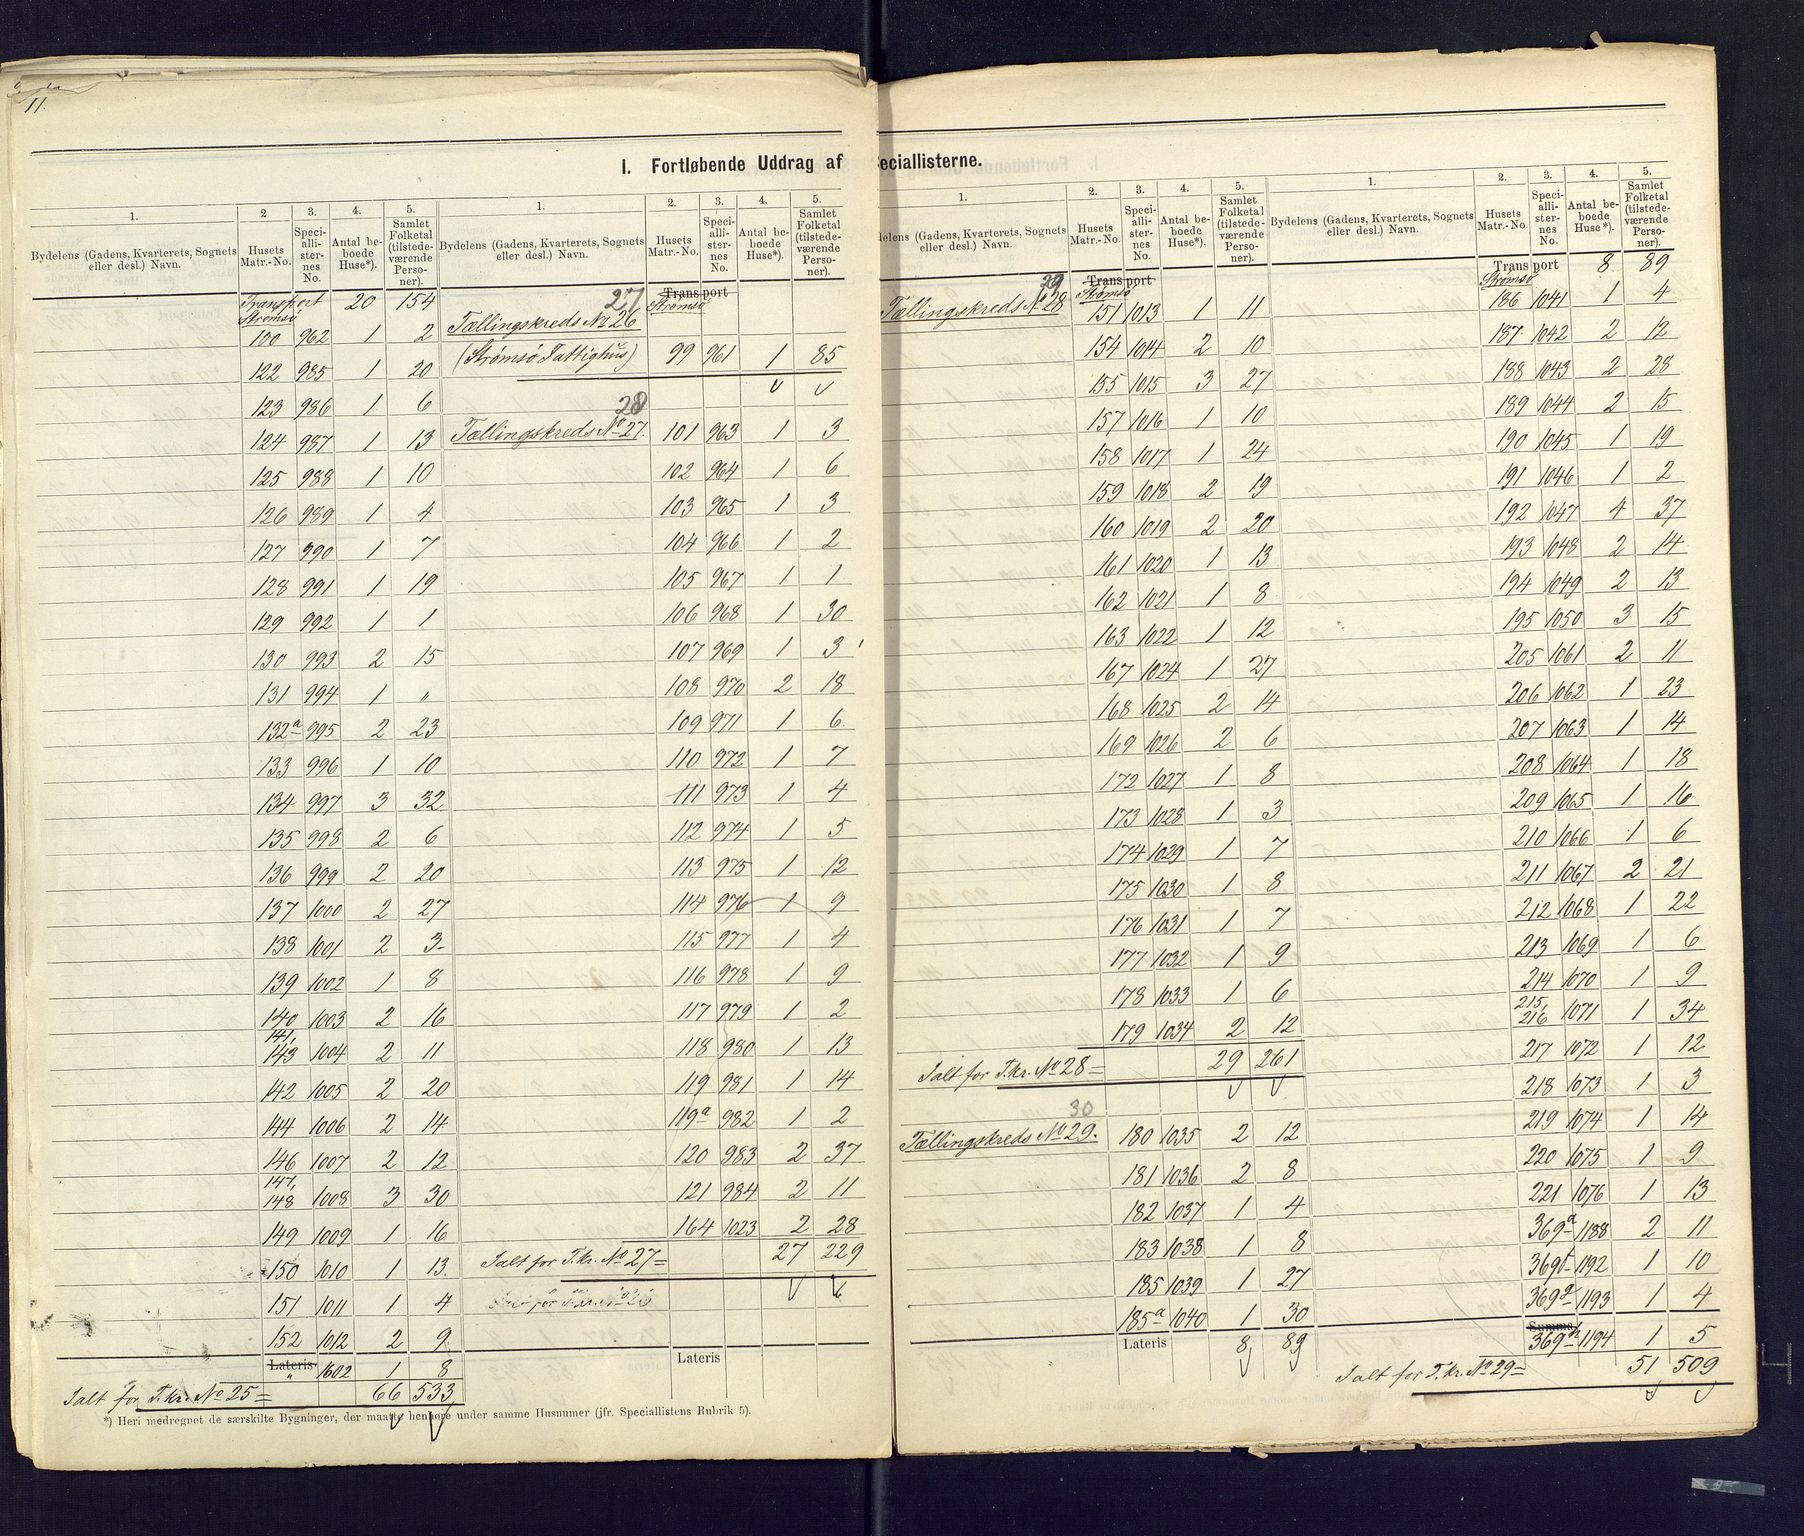 11.
I. Fortløbende Uddrag af
1.
2
3.
4.
5.
Bydelens (Gadens, Kvarterets, Sognets eller desl.) Navn.
Husets Matr.-No.
Speciallisternes No.
Antal beboede Huse*).
Samlet Folketal (tilstedeværende Personer).
Transport 20 154
Strømsø
100 962 1 2
122 985 1 20
123 986 1 6
124 987 1 13
125 988 1 10
126 989 1 4
127 990 1 7
128 991 1 19
129 992 1 1
130 993 2 15
131 994 1 "
132a 995 2 23
133 996 1 10
134 997 3 32
135 998 2 6
136 999 2 20
137 1000 2 27
138 1001 2 3
139 1002 1 8
140 1003 2 16
141, 143 1004 2 11
142 1005 2 20
144 1006 2 14
146 1007 2 12
147, 148 1008 3 30
149 1009 1 16
150 1010 1 13
151 1011 1 4
152 1012 2 9
Lateris
" 1602 1 8
Ialt for T.kr. No 25 = 66 533
*) Heri medregnet de særskilte Bygninger, der maatte henhøre under samme Husnumer (jfr. Speciallistens Rubrik 5).
1.
2.
3.
4.
5.
Bydelens (Gadens, Kvarterets, Sognets eller desl.) Navn.
Husets Matr.-No.
Speciallisternes No.
Antal beboede Huse*).
Samlet Folketal (tilstedeværende Personer).
Transport
27 Strømsø
Tællingskreds No 26
(Strømsø Fattighus) 99 961 1 85
28
Tællingskreds No 27. 101 963 1 3
102 964 1 6
103 965 1 3
104 966 1 2
105 967 1 1
106 968 1 30
107 969 1 3
108 970 2 18
109 971 1 6
110 972 1 7
111 973 1 4
112 974 1 5
113 975 1 12
114 976 1 9
115 977 1 4
116 978 1 9
117 979 1 2
118 980 1 13
119 981 1 14
119a 982 1 2
120 983 2 37
121 984 2 11
164 1023 2 28
Ialt for T.kr. No 27 = 27 229
Lateris
eciallisterne.
1.
2.
3.
4.
5.
delens (Gadens, Kvarterets, Sognets eller desl.) Navn.
Husets Matr.-No.
Speciallisternes No.
Antal beboede Huse*).
Samlet Folketal (tilstedeværende Personer).
Transport
29 Strømsø
Tællingskreds No 28 151 1013 1 11
154 1014 2 10
155 1015 3 27
157 1016 1 10
158 1017 1 24
159 1018 2 19
160 1019 2 20
161 1020 1 13
162 1021 1 8
163 1022 1 12
167 1024 1 27
168 1025 2 14
169 1026 2 6
172 1027 1 8
173 1028 1 3
174 1029 1 7
175 1030 1 8
176 1031 1 7
177 1032 1 9
178 1033 1 6
179 1034 2 12
Ialt for T.kr. No 28 = 29 261
30
Tællingskreds No 29. 180 1035 2 12
181 1036 2 8
182 1037 1 4
183 1038 1 8
185 1039 1 27
185a 1040 1 30
Lateris 8 89
1.
2.
3.
4.
5.
Bydelens (Gadens, Kvarterets, Sognets eller desl.) Navn.
Husets Matr.-No.
Speciallisternes No.
Antal beboede Huse*).
Samlet Folketal (tilstedeværende Personer).
Transport 8 89
Strømsø
186 1041 1 4
187 1042 2 12
188 1043 2 28
189 1044 2 15
190 1045 1 19
191 1046 1 2
192 1047 4 37
193 1048 2 14
194 1049 2 13
195 1050 3 15
205 1061 2 11
206 1062 1 23
207 1063 1 14
208 1064 1 18
209 1065 1 16
210 1066 1 6
211 1067 2 21
212 1068 1 22
213 1069 1 6
214 1070 1 9
215, 216 1071 1 34
217 1072 1 12
218 1073 1 3
219 1074 1 14
220 1075 1 9
221 1076 1 13
369a 1188 2 11
369f 1192 1 10
369g 1193 1 4
Summa
369h 1194 1 5
Ialt for T.kr. No 29 = 51 509